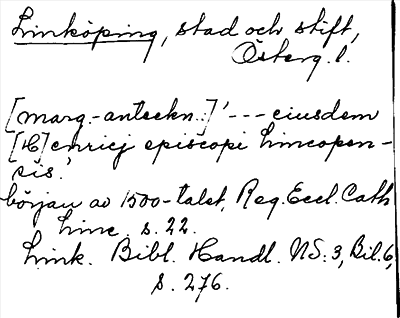 Linköping, stad och stift,
Österg. l.
[marg.-anteckn.:] '--- eiusdem
[H]enricj episcopi Lincopen-
sis.'
början av 1500-talet, Reg. Eccl. Cath
Linc. s. 22.
Link. Bibl. Handl. NS: 3, Bil. 6,
s. 276.